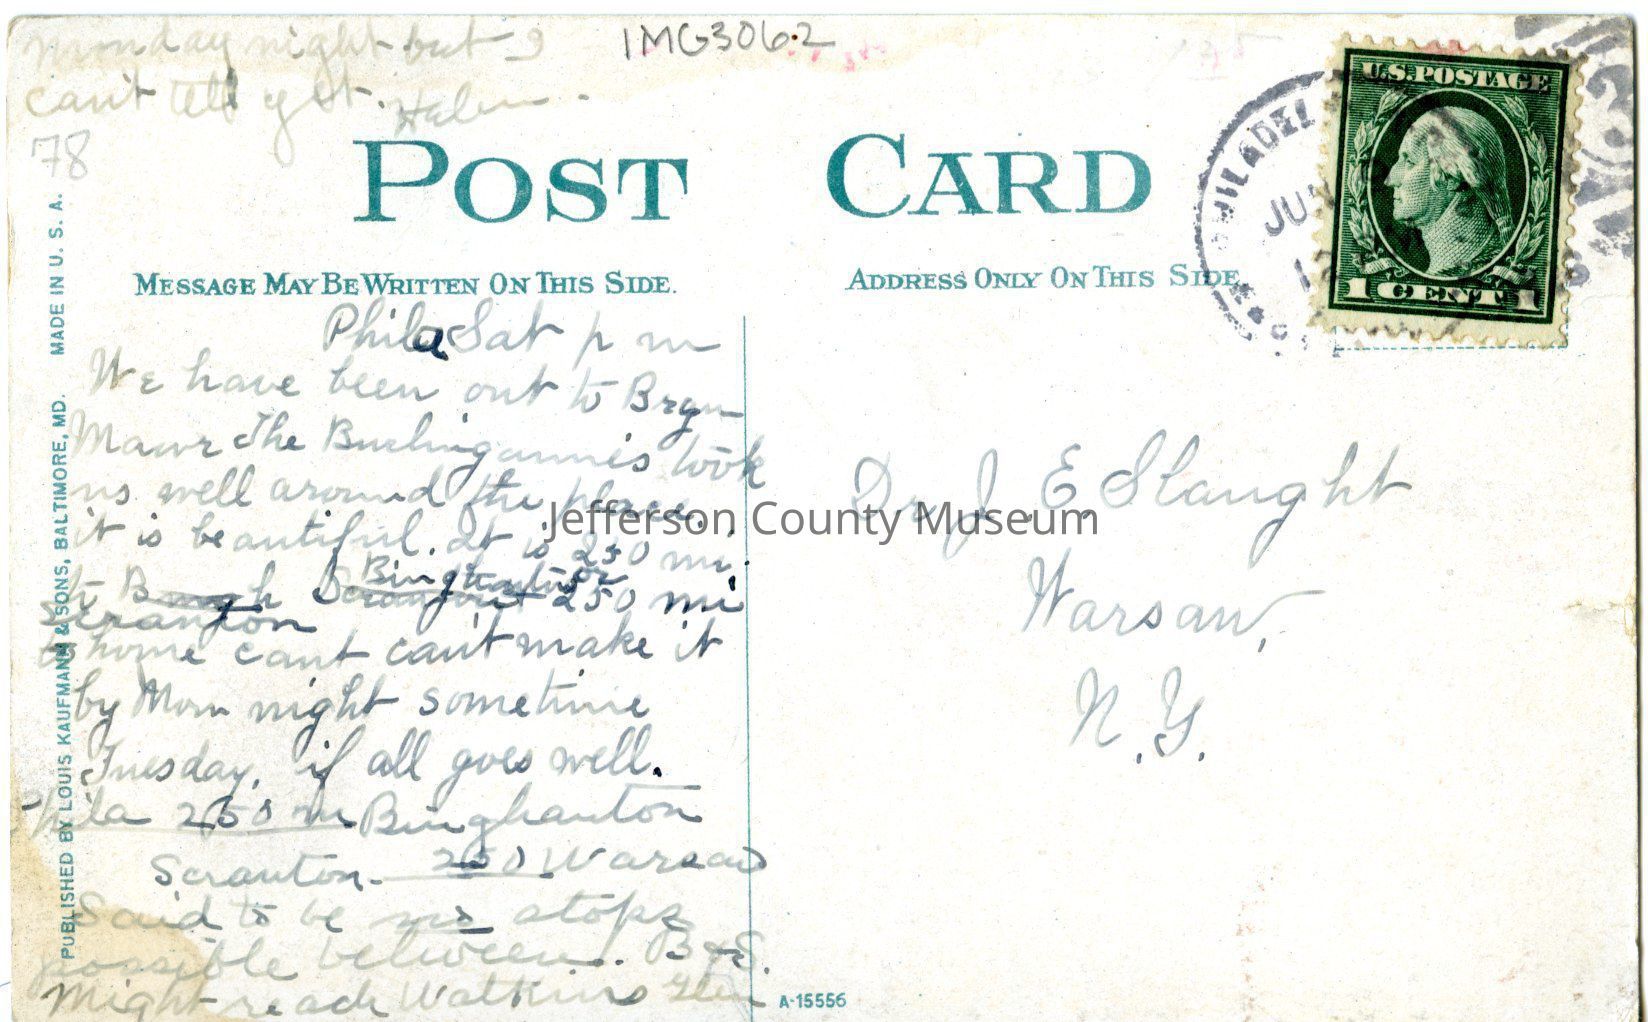 Monday night but I
can't tell yet. Helen.
1MG3062
78
POST CARD
MESSAGE MAY BE WRITTEN ON THIS SIDE.
ADDRESS ONLY ON THIS SIDE
U.S. POSTAGE
1 CENT 1
PHILADEL
JUN
12
Phila Sat p m
We have been out to Bryn
Mawr The Burlingames took
us well around the place.
it is beautiful. It is 250 mi.
Binghamton or
to Scranton 250 mi
Scranton
to home cant can't make it
by Mon night sometime
Tuesday, if all goes well.
Phila 250 m Binghamton
Scranton. 250 Warsaw
Said to be no stops
possible between. B & S.
Might reach Watkins Glen
Dr J. E. Slaught
Warsaw,
N.Y.
Jefferson County Museum
PUBLISHED BY LOUIS KAUFMANN & SONS, BALTIMORE, MD. MADE IN U. S. A.
A-15556